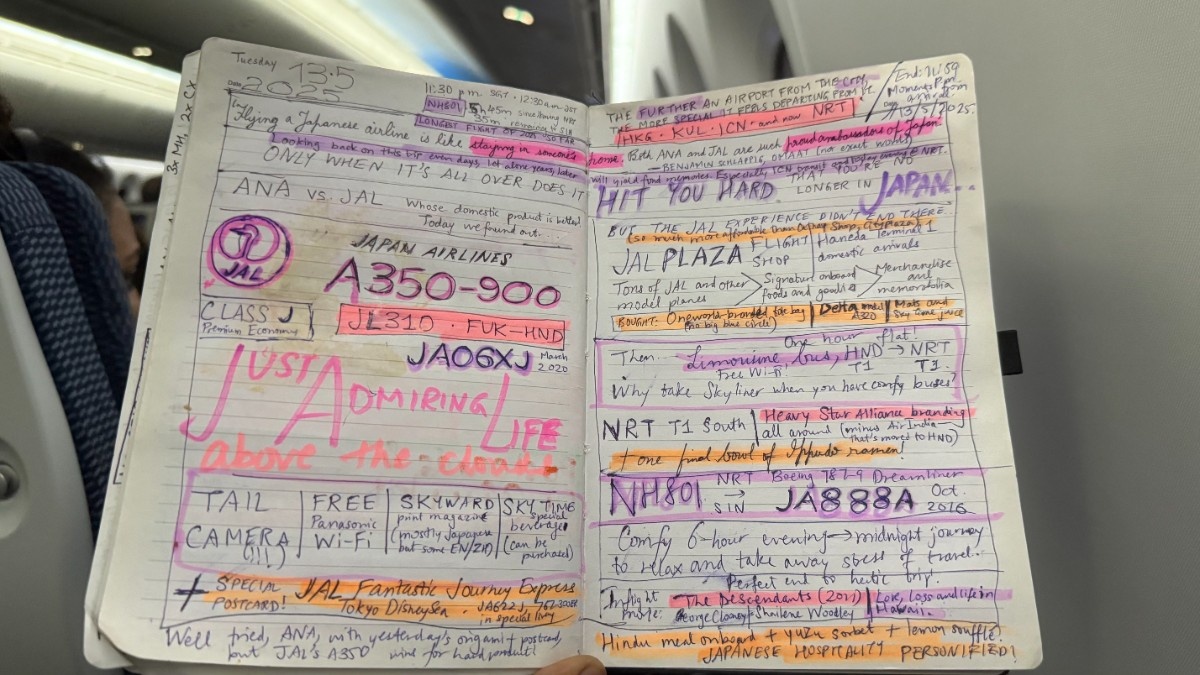 Tuesday 13.5
DATE 2025
11:30 pm SGT · 12:30am JST
NH801 5h45m since leaving NRT
35m remaining to SIN
LONGEST FLIGHT OF 2025 SO FAR
3x MH, 2x CX
Flying a Japanese airline is like staying in someone's home. Both ANA and JAL are such proud ambassadors of Japan.
— BENJAMIN SCHLAPPIG, OMAAT (no exact words)
Looking back on this trip even days, let alone years, later will yield fond memories. Especially ICN
ONLY WHEN IT'S ALL OVER DOES IT
ANA vs. JAL Whose domestic product is better?
Today we found out...
JAL
JAPAN AIRLINES
A350-900
CLASS J
Premium Economy
JL310 · FUK-HND
JA06XJ March
2020
JUST ADMIRING LIFE
above the clouds
TAIL CAMERA (!!!)
FREE Panasonic Wi-Fi
SKYWARD print magazine (mostly Japanese but some EN/ZH)
SKY TIME special beverage (can be purchased)
+ SPECIAL POSTCARD! JAL Fantastic Journey Express
Tokyo DisneySea · JA622J, 767-300ER
in special livery
Well tried, ANA, with yesterday's origami + postcard,
but JAL's A350 wins for hard product!
THE FURTHER AN AIRPORT FROM THE CITY,
THE MORE SPECIAL IT FEELS DEPARTING FROM IT.
HKG · KUL · ICN · and now NRT
End: 11:59
Moments
13/5/2025.
HIT YOU HARD THAT YOU'RE NO
LONGER IN JAPAN...
BUT THE JAL EXPERIENCE DIDN'T END THERE
(so much more affordable than
JAL PLAZA FLIGHT SHOP
Haneda Terminal 1
domestic arrivals
Tons of JAL and other model planes
Signature onboard foods and goods
Merchandise and memorabilia
BOUGHT: Oneworld-branded tote bag
(no big blue circle)
Delta model A320
Mats and Sky time juice
One hour flat!
Then... Limousine bus, HND → NRT
Free Wi-Fi! T1 T1.
Why take Skyliner when you have comfy buses?
NRT T1 South
Heavy Star Alliance branding
all around (minus Air India—
that's moved to HND)
+ one final bowl of Ippudo ramen!
NH801 NRT → SIN
Boeing 787-9 Dreamliner
JA888A Oct.
2016
Comfy 6-hour evening → midnight journey
to relax and take away stress of travel.
Perfect end to hectic trip.
Inflight movie: The Descendants (2011)
George Clooney + Shailene Woodley
Love, loss and life in
Hawaii.
Hindu meal onboard + yuzu sorbet + lemon soufflé.
JAPANESE HOSPITALITY PERSONIFIED!